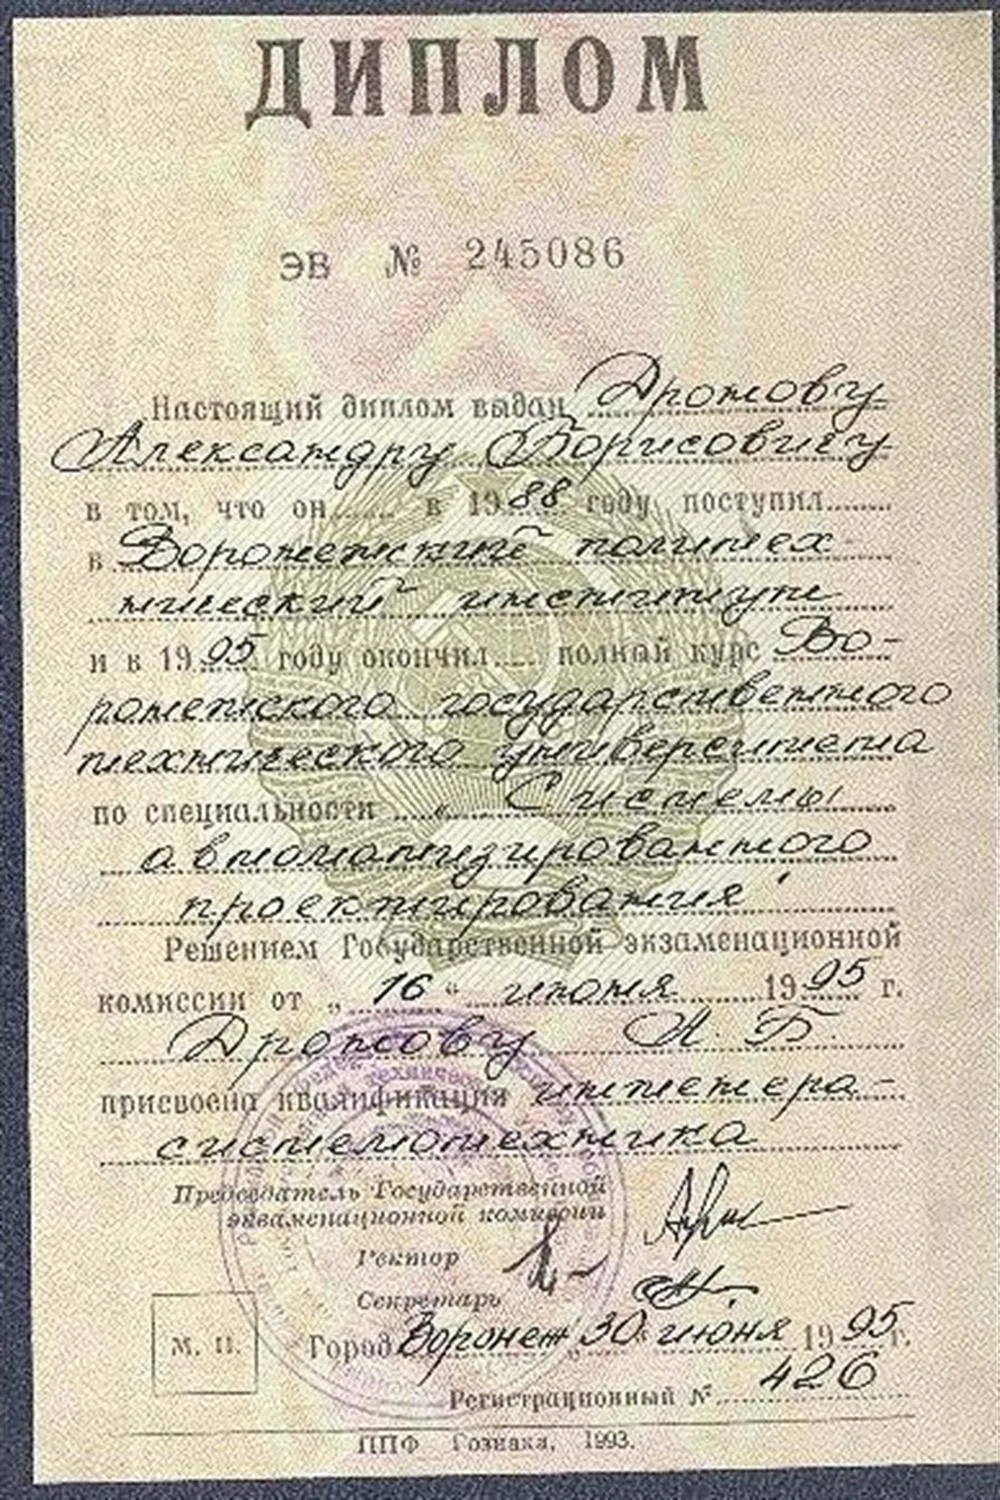 ДИПЛОМ
ЭВ № 245086
Настоящий диплом выдан Дрожову
Александру Борисовичу
в том, что он...... в 1988 году поступил.......
в Воронежский политех
нический институт
и в 1995 году окончил..... полный курс Во-
ронежского государственного
технического университета
по специальности „ Системы
автоматизированного
проектирования
Решением Государственной экзаменационной
комиссии от „ 16 “ июня 1995 г.
Дрожову А. Б.
присвоена квалификация инженера-
системотехника
Председатель Государственной
экзаменационной комиссии
Ректор
Секретарь
Город Воронеж „ 30 “ июня 1995 г.
М. П.
Регистрационный № 426
ППФ Гознака, 1993.